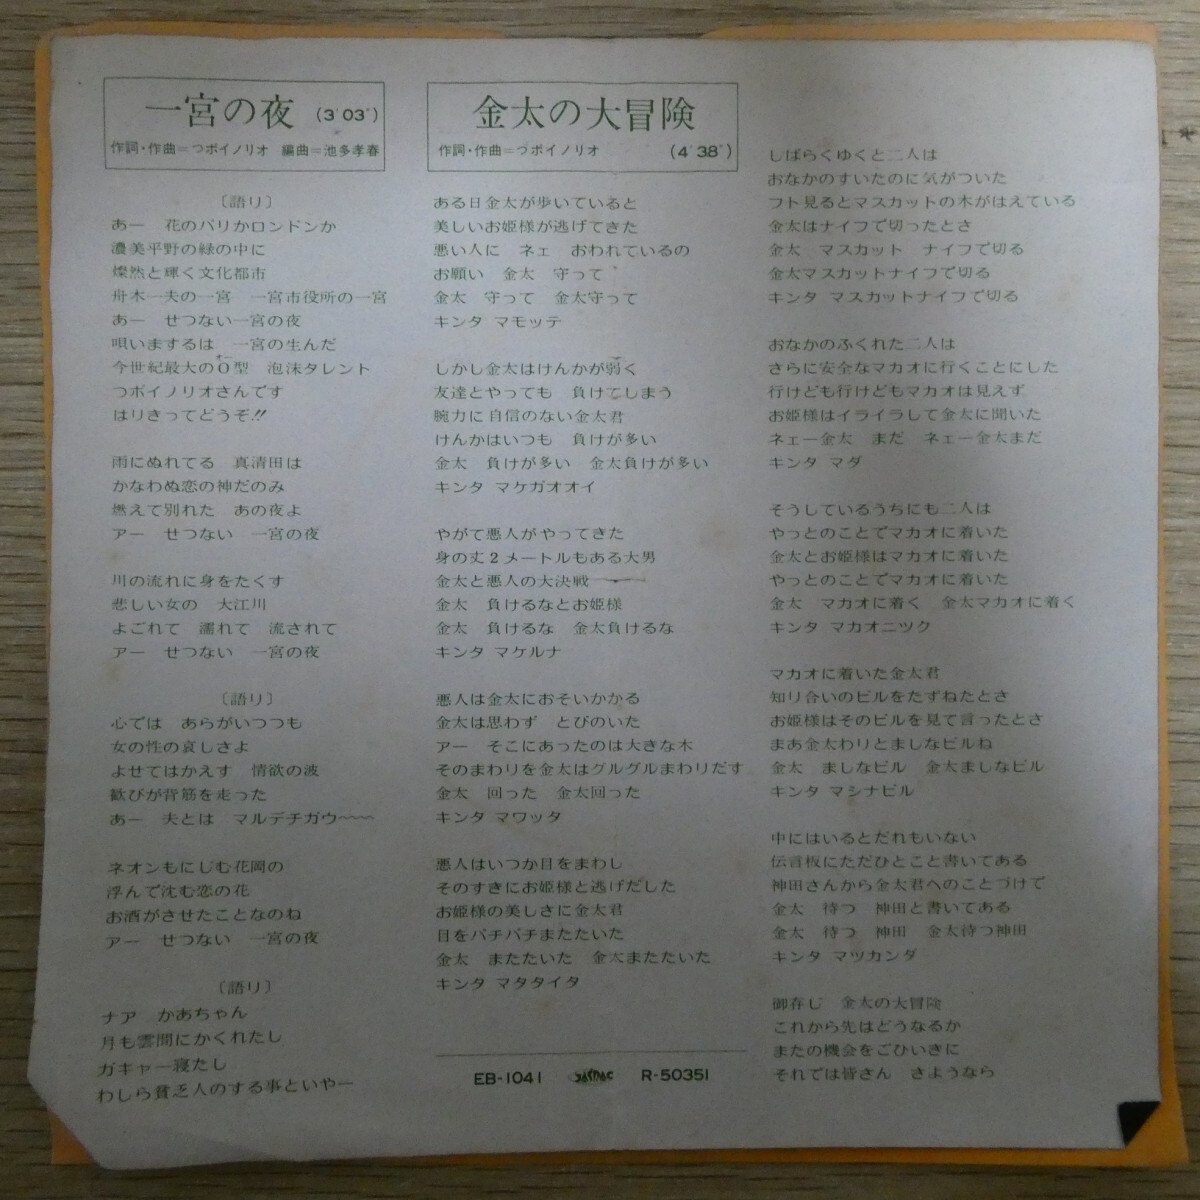 一宮の夜 (3'03")
作詞・作曲=つボイノリオ 編曲=池多孝春
〔語り〕
あー 花のパリかロンドンか
濃美平野の緑の中に
燦然と輝く文化都市
舟木一夫の一宮 一宮市役所の一宮
あー せつない一宮の夜
唄いまするは 一宮の生んだ
今世紀最大のO型 泡沫タレント
つボイノリオさんです
はりきってどうぞ!!
雨にぬれてる 真清田は
かなわぬ恋の神だのみ
燃えて別れた あの夜よ
アー せつない 一宮の夜
川の流れに身をたくす
悲しい女の 大江川
よごれて 濡れて 流されて
アー せつない 一宮の夜
〔語り〕
心では あらがいつつも
女の性の哀しさよ
よせてはかえす 情欲の波
歓びが背筋を走った
あー 夫とは マルデチガウ〜〜
ネオンもにじむ花岡の
浮んで沈む恋の花
お酒がさせたことなのね
アー せつない 一宮の夜
〔語り〕
ナア かあちゃん
月も雲間にかくれたし
ガキャー寝たし
わしら貧乏人のする事といやー
金太の大冒険
作詞・作曲=つボイノリオ (4'38")
ある日金太が歩いていると
美しいお姫様が逃げてきた
悪い人に ネェ おわれているの
お願い 金太 守って
金太 守って 金太守って
キンタ マモッテ
しかし金太はけんかが弱く
友達とやっても 負けてしまう
腕力に自信のない金太君
けんかはいつも 負けが多い
金太 負けが多い 金太負けが多い
キンタ マケガオオイ
やがて悪人がやってきた
身の丈2メートルもある大男
金太と悪人の大決戦
金太 負けるなとお姫様
金太 負けるな 金太負けるな
キンタ マケルナ
悪人は金太におそいかかる
金太は思わず とびのいた
アー そこにあったのは大きな木
そのまわりを金太はグルグルまわりだす
金太 回った 金太回った
キンタ マワッタ
悪人はいつか目をまわし
そのすきにお姫様と逃げだした
お姫様の美しさに金太君
目をパチパチまたたいた
金太 またたいた 金太またたいた
キンタ マタタイタ
EB-1041 JASRAC R-50351
しばらくゆくと二人は
おなかのすいたのに気がついた
フト見るとマスカットの木がはえている
金太はナイフで切ったとさ
金太 マスカット ナイフで切る
金太マスカットナイフで切る
キンタ マスカットナイフで切る
おなかのふくれた二人は
さらに安全なマカオに行くことにした
行けども行けどもマカオは見えず
お姫様はイライラして金太に聞いた
ネェー金太 まだ ネェー金太まだ
キンタ マダ
そうしているうちにも二人は
やっとのことでマカオに着いた
金太とお姫様はマカオに着いた
やっとのことでマカオに着いた
金太 マカオに着く 金太マカオに着く
キンタ マカオニツク
マカオに着いた金太君
知り合いのビルをたずねたとさ
お姫様はそのビルを見て言ったとさ
まあ金太わりとましなビルね
金太 ましなビル 金太ましなビル
キンタ マシナビル
中にはいるとだれもいない
伝言板にただひとこと書いてある
神田さんから金太君へのことづけで
金太 待つ 神田と書いてある
金太 待つ 神田 金太待つ神田
キンタ マツカンダ
御存じ 金太の大冒険
これから先はどうなるか
またの機会をごひいきに
それでは皆さん さようなら